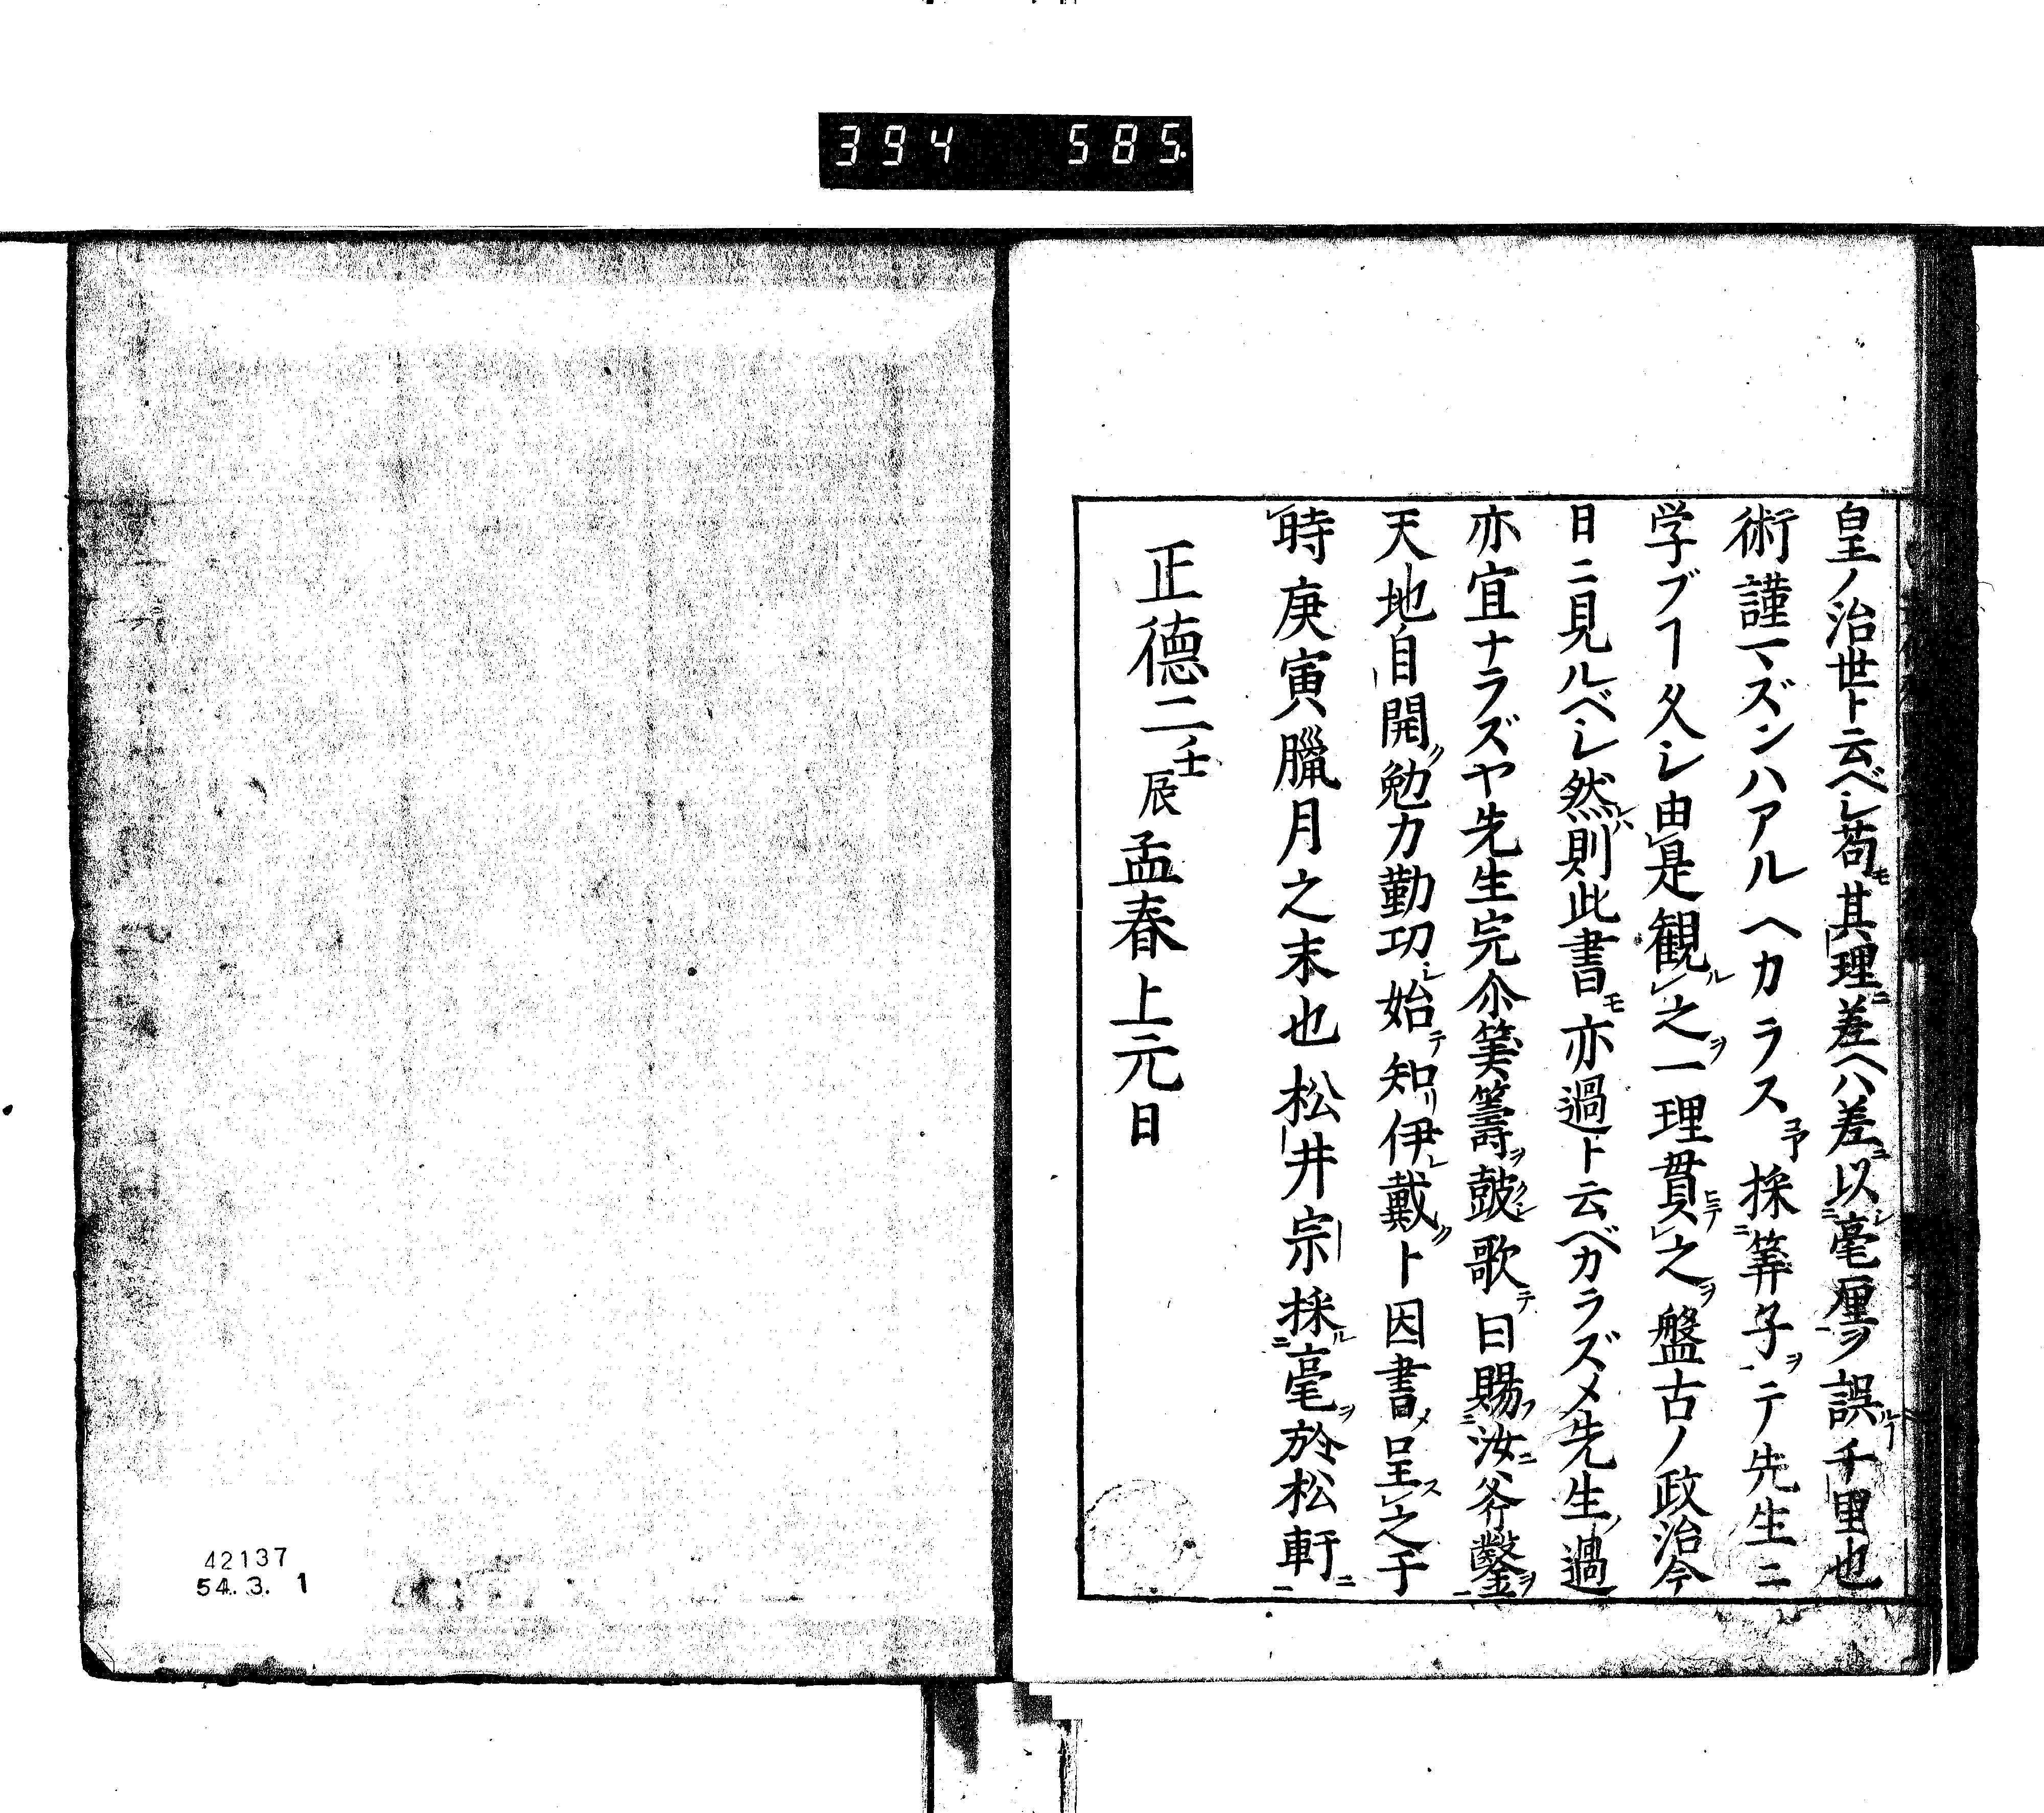 394 585.
皇ノ治世ト云ベシ苟モ其理ニ差ヘハ差ニ以レ毫厘ヲ誤ルヿ千里也
術謹マズンハアルヘカラス予採筭子ヲテ先生ニ
学ブヿ久シ由是観ルレ之ヲ一理貫ヒテレ之ヲ盤古ノ政治今
日ニ見ルベシ然レハ則此書モ亦過ト云ベカラズメ先生ノ過
亦宜ナラズヤ先生完尒筭籌ヲ鼓クシ歌テ曰賜フ汝ニ斧鑿ヲ
天地自開ク勉力勤功シ始テ知リ伊レ戴クト因書メ呈スレ之于
時庚寅臘月之末也松井宗採ル毫ヲ於松軒ニ
正德二壬辰孟春上元日
42137
54. 3. 1